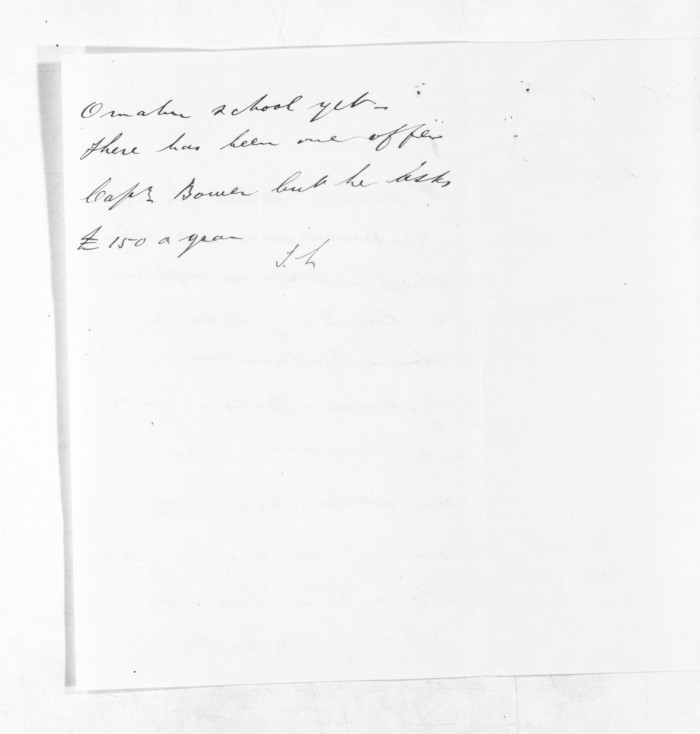 Omahu school yet –
There has been one offer
Capt Bower but he asks
£150 a year
S. L